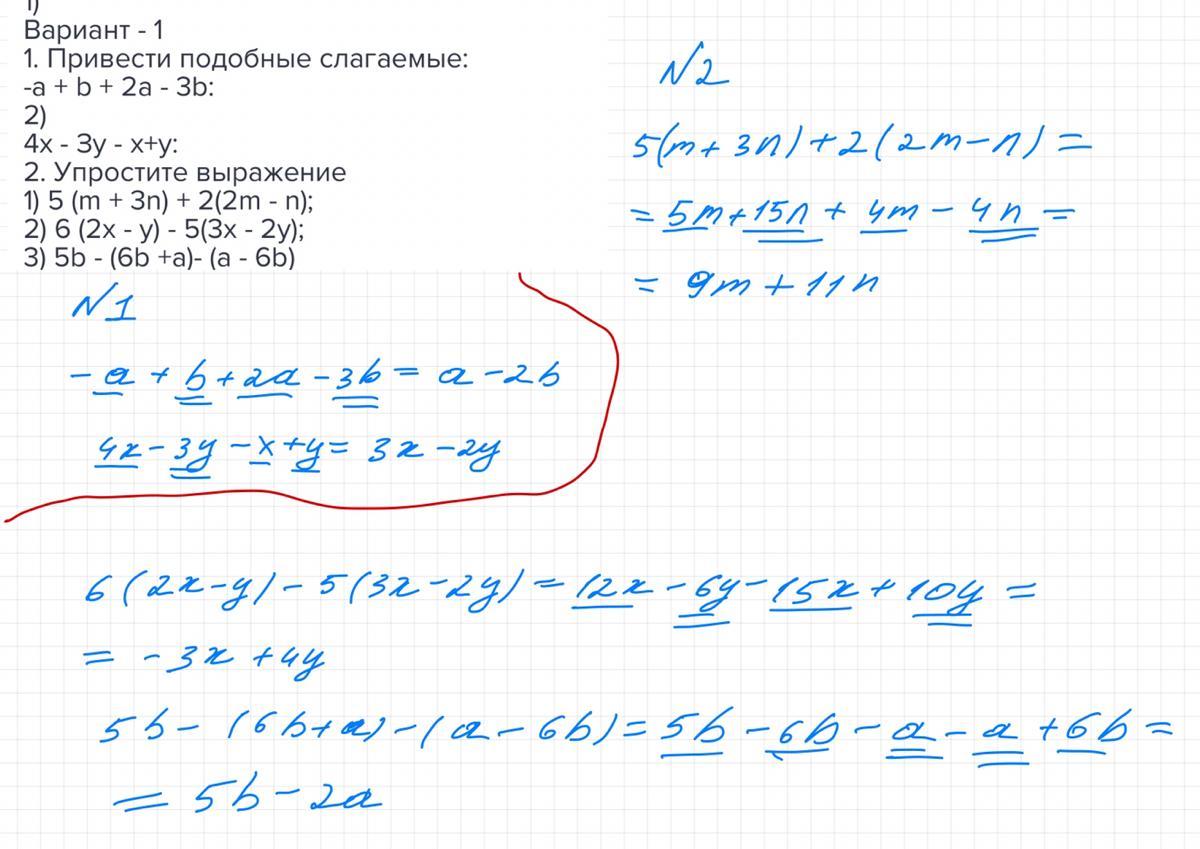 1)
Вариант - 1
1. Привести подобные слагаемые:
-a + b + 2a - 3b:
2)
4x - 3y - x+y:
2. Упростите выражение
1) 5 (m + 3n) + 2(2m - n);
2) 6 (2x - y) - 5(3x - 2y);
3) 5b - (6b +a)- (a - 6b)
N1
-a + b + 2a - 3b = a - 2b
4x - 3y - x + y = 3x - 2y
N2
5(m + 3n) + 2(2m - n) =
= 5m + 15n + 4m - 4n =
= 9m + 11n
6(2x - y) - 5(3x - 2y) = 12x - 6y - 15x + 10y =
= -3x + 4y
5b - (6b + a) - (a - 6b) = 5b - 6b - a - a + 6b =
= 5b - 2a